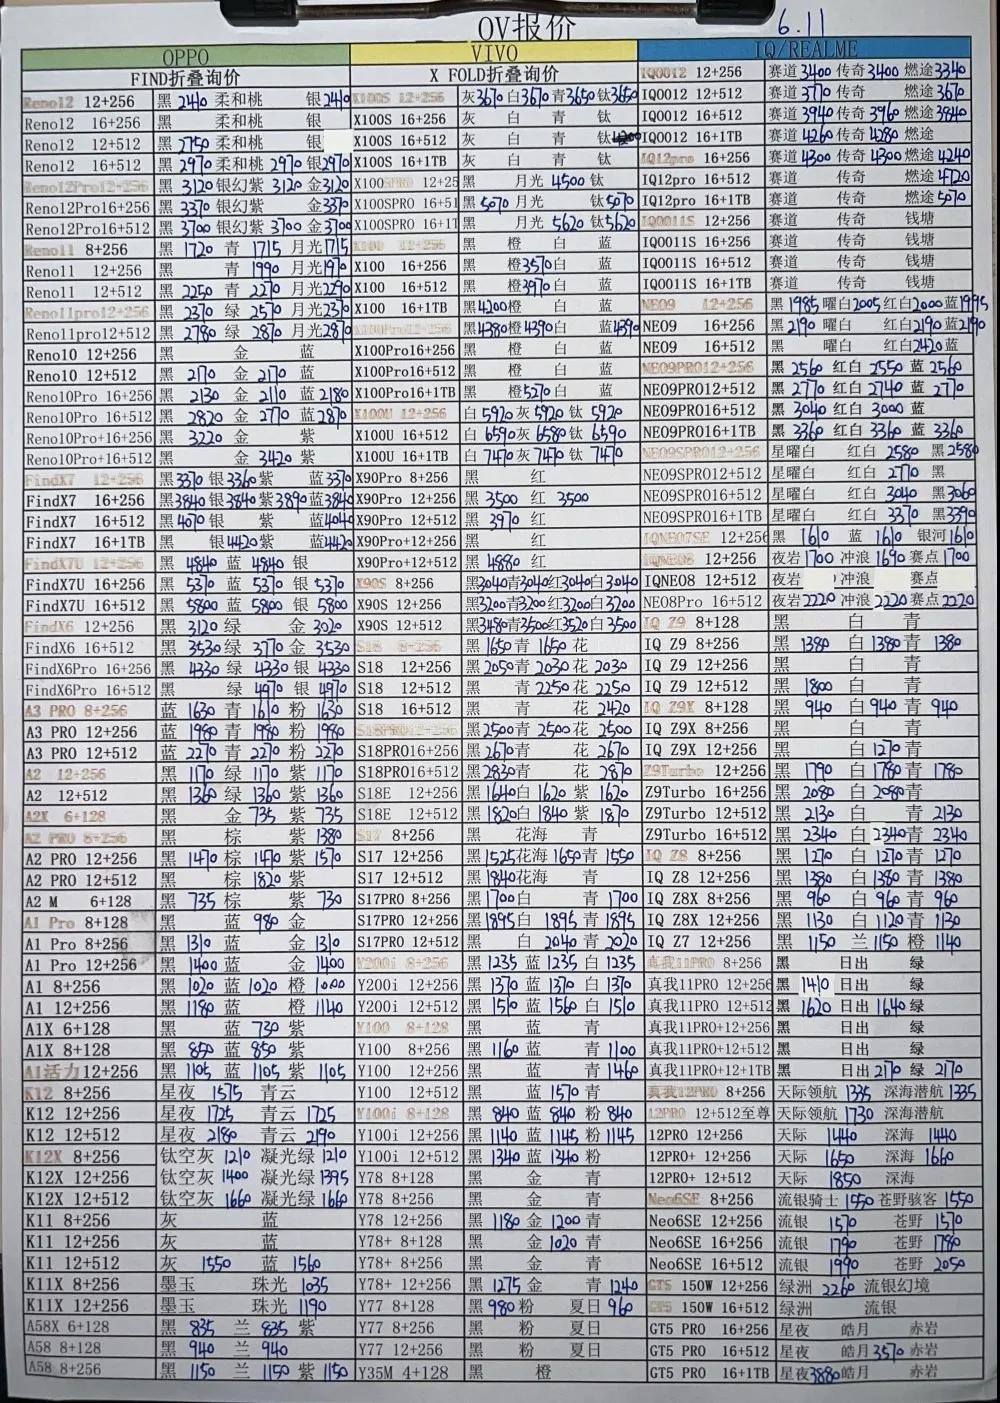 OV报价
6.11
OPPO VIVO IQ/REALME
FIND折叠询价 X FOLD折叠询价 IQ0012 12+256 赛道3400 传奇3400 燃途3340
Reno12 12+256 黑2410 柔和桃 银2410 X100S 12+256 灰3670 白3670 青3650 钛3650 IQ0012 12+512 赛道3770 传奇 燃途3670
Reno12 16+256 黑 柔和桃 银 X100S 16+256 灰 白 青 钛 IQ0012 16+512 赛道3940 传奇3960 燃途3840
Reno12 12+512 黑2750 柔和桃 银 X100S 16+512 灰 白 青 钛4200 IQ0012 16+1TB 赛道4260 传奇4280 燃途
Reno12 16+512 黑2970 柔和桃2970 银2970 X100S 16+1TB 灰 白 青 钛 IQ12pro 16+256 赛道4300 传奇4300 燃途4240
Reno12Pro12+256 黑3120 银幻紫3120 金3120 X100SPRO 12+25 黑 月光4500 钛 IQ12pro 16+512 赛道 传奇 燃途4720
Reno12Pro16+256 黑3370 银幻紫 金3370 X100SPRO 16+51 黑5070 月光 钛5070 IQ12pro 16+1TB 赛道 传奇 燃途5070
Reno12Pro16+512 黑3700 银幻紫3700 金3700 X100SPRO 16+1T 黑 月光5620 钛5620 IQ0011S 12+256 赛道 传奇 钱塘
Reno11 8+256 黑1720 青1715 月光1715 X100 12+256 黑 橙 白 蓝 IQ0011S 16+256 赛道 传奇 钱塘
Reno11 12+256 黑 青1990 月光1970 X100 16+256 黑 橙3570 白 蓝 IQ0011S 16+512 赛道 传奇 钱塘
Reno11 12+512 黑2250 青2270 月光2290 X100 16+512 黑 橙3970 白 蓝 IQ0011S 16+1TB 赛道 传奇 钱塘
Reno11pro12+256 黑2370 绿2570 月光2370 X100 16+1TB 黑4200 橙 白 蓝 NEO9 12+256 黑1985 曜白2005 红白2000 蓝1995
Reno11pro12+512 黑2780 绿2870 月光2870 X100Pro12+256 黑4380 橙4390 白 蓝4390 NEO9 16+256 黑2190 曜白 红白2190 蓝2190
Reno10 12+256 黑 金 蓝 X100Pro16+256 黑 橙 白 蓝 NEO9 16+512 黑 曜白 红白2420 蓝
Reno10 12+512 黑2170 金2170 蓝 X100Pro16+512 黑 橙 白 蓝 NEO9PRO12+256 黑2560 红白2550 蓝2560
Reno10Pro 16+256 黑2130 金2110 蓝2180 X100Pro16+1TB 黑 橙5270 白 蓝 NEO9PRO12+512 黑2770 红白2740 蓝2770
Reno10Pro 16+512 黑2820 金2770 蓝2870 X100U 12+256 白5920 灰5920 钛5920 NEO9PRO16+512 黑3040 红白3000 蓝
Reno10Pro+16+256 黑3220 金 紫 X100U 16+512 白6590 灰6580 钛6590 NEO9PRO16+1TB 黑3360 红白3360 蓝3360
Reno10Pro+16+512 黑 金3420 紫 X100U 16+1TB 白7470 灰7470 钛7470 NEO9SPRO12+256 星曜白 红白2580 黑2580
FindX7 12+256 黑3370 银3360 紫 蓝3370 X90Pro 8+256 黑 红 NEO9SPRO12+512 星曜白 红白2770 黑
FindX7 16+256 黑3840 银3840 紫3890 蓝3840 X90Pro 12+256 黑3500 红3500 NEO9SPRO16+512 星曜白 红白3040 黑3060
FindX7 16+512 黑4070 银 紫 蓝4040 X90Pro 12+512 黑3970 红 NEO9SPRO16+1TB 星曜白 红白3370 黑3390
FindX7 16+1TB 黑 银4420 紫 蓝4420 X90Pro+12+256 黑 红 IQNEO7SE 12+256 黑1610 蓝1610 银河1610
FindX7U 12+256 黑4840 蓝4840 银 X90Pro+12+512 黑4880 红 IQNEO8 12+256 夜岩1700 冲浪1690 赛点1700
FindX7U 16+256 黑5370 蓝5370 银5370 X90S 8+256 黑3040 青3040 红3040 白3040 IQNEO8 12+512 夜岩 冲浪 赛点
FindX7U 16+512 黑5800 蓝5800 银5800 X90S 12+256 黑3200 青3200 红3200 白3200 NEO8Pro 16+512 夜岩2220 冲浪2220 赛点2220
FindX6 12+256 黑3120 绿 金3020 X90S 12+512 黑3480 青3500 红3520 白3500 IQ Z9 8+128 黑 白 青
FindX6 16+512 黑3530 绿3770 金3530 S18 8+256 黑1650 青1650 花 IQ Z9 8+256 黑1380 白1380 青1380
FindX6Pro 16+256 黑4330 绿4330 银4330 S18 12+256 黑2050 青2030 花2030 IQ Z9 12+256 黑 白 青
FindX6Pro 16+512 黑 绿4970 银4970 S18 12+512 黑 青2250 花2250 IQ Z9 12+512 黑1800 白 青
A3 PRO 8+256 蓝1630 青1610 粉1630 S18 16+512 黑 青 花2420 IQ Z9X 8+128 黑940 白940 青940
A3 PRO 12+256 蓝1980 青1980 粉1980 S18PRO12+256 黑2500 青2500 花2500 IQ Z9X 8+256 黑 白 青
A3 PRO 12+512 蓝2270 青2270 粉2270 S18PRO16+256 黑2670 青 花2670 IQ Z9X 12+256 黑 白1270 青
A2 12+256 黑1170 绿1170 紫1170 S18PRO16+512 黑2830 青 花2870 Z9Turbo 12+256 黑1790 白1780 青1780
A2 12+512 黑1360 绿1360 紫1360 S18E 12+256 黑1640 白1620 紫1620 Z9Turbo 16+256 黑2080 白2080 青
A2X 6+128 黑 金735 紫735 S18E 12+512 黑1820 白1840 紫1870 Z9Turbo 12+512 黑2130 白 青2130
A2 PRO 8+256 黑 棕 紫1380 S17 8+256 黑 花海 青 Z9Turbo 16+512 黑2340 白2340 青2340
A2 PRO 12+256 黑1470 棕1470 紫1570 S17 12+256 黑1525 花海1650 青1550 IQ Z8 8+256 黑1270 白1270 青1270
A2 PRO 12+512 黑 棕1820 紫 S17 12+512 黑1840 花海 青 IQ Z8 12+256 黑1380 白1380 青1380
A2 M 6+128 黑735 棕 紫730 S17PRO 8+256 黑1700 白 青1700 IQ Z8X 8+256 黑960 白960 青960
A1 Pro 8+128 黑 蓝980 金 S17PRO 12+256 黑1895 白1895 青1895 IQ Z8X 12+256 黑1130 白1120 青1130
A1 Pro 8+256 黑1310 蓝 金1310 S17PRO 12+512 黑 白2040 青2020 IQ Z7 12+256 黑1150 兰1150 橙1140
A1 Pro 12+256 黑1400 蓝 金1400 Y200i 8+256 黑1235 蓝1235 白1235 真我11PRO 8+256 黑 日出 绿
A1 8+256 黑1020 蓝1020 橙1000 Y200i 12+256 黑1370 蓝1370 白1370 真我11PRO 12+256 黑1410 日出 绿
A1 12+256 黑1180 蓝 橙1140 Y200i 12+512 黑1510 蓝1560 白1510 真我11PRO 12+512 黑1620 日出1640 绿
A1X 6+128 黑 蓝730 紫 Y100 8+128 黑 蓝 青 真我11PRO+12+256 黑 日出 绿
A1X 8+128 黑850 蓝850 紫 Y100 8+256 黑1160 蓝 青1100 真我11PRO+12+512 黑 日出 绿
A1活力12+256 黑1105 蓝1105 紫1105 Y100 12+256 黑 蓝 青1460 真我11PRO+12+1TB 黑 日出2170 绿2170
K12 8+256 星夜1575 青云 Y100 12+512 黑 蓝1570 青 真我12PRO 8+256 天际领航1335 深海潜航1335
K12 12+256 星夜1725 青云1725 Y100i 8+128 黑840 蓝840 粉840 12PRO 12+512至尊 天际领航1730 深海潜航
K12 12+512 星夜2180 青云2190 Y100i 12+256 黑1140 蓝1145 粉1145 12PRO 12+256 天际1440 深海1440
K12X 8+256 钛空灰1210 凝光绿1210 Y100i 12+512 黑1340 蓝1340 粉 12PRO+ 12+256 天际1650 深海1660
K12X 12+256 钛空灰1400 凝光绿1395 Y78 8+128 黑 金 青 12PRO+ 12+512 天际1850 深海
K12X 12+512 钛空灰1660 凝光绿1660 Y78 8+256 黑 金 青 Neo6SE 8+256 流银骑士1550 苍野骇客1550
K11 8+256 灰 蓝 Y78 12+256 黑1180 金1200 青 Neo6SE 12+256 流银1570 苍野1570
K11 12+256 灰 蓝 Y78+ 8+128 黑 金1020 青 Neo6SE 16+256 流银1790 苍野1780
K11 12+512 灰1550 蓝1560 Y78+ 8+256 黑 金 青 Neo6SE 16+512 流银1990 苍野2050
K11X 8+256 墨玉 珠光1035 Y78+ 12+256 黑1275 金 青1240 GT5 150W 12+256 绿洲2260 流银幻境
K11X 12+256 墨玉 珠光1190 Y77 8+128 黑980 粉 夏日960 GT5 150W 16+512 绿洲 流银
A58X 6+128 黑835 兰835 紫 Y77 8+256 黑 粉 夏日 GT5 PRO 16+256 星夜 皓月 赤岩
A58 8+128 黑940 兰940 Y77 12+256 黑 粉 夏日 GT5 PRO 16+512 星夜 皓月3570 赤岩
A58 8+256 黑1150 兰1150 紫1150 Y35M 4+128 黑 橙 GT5 PRO 16+1TB 星夜3880 皓月 赤岩